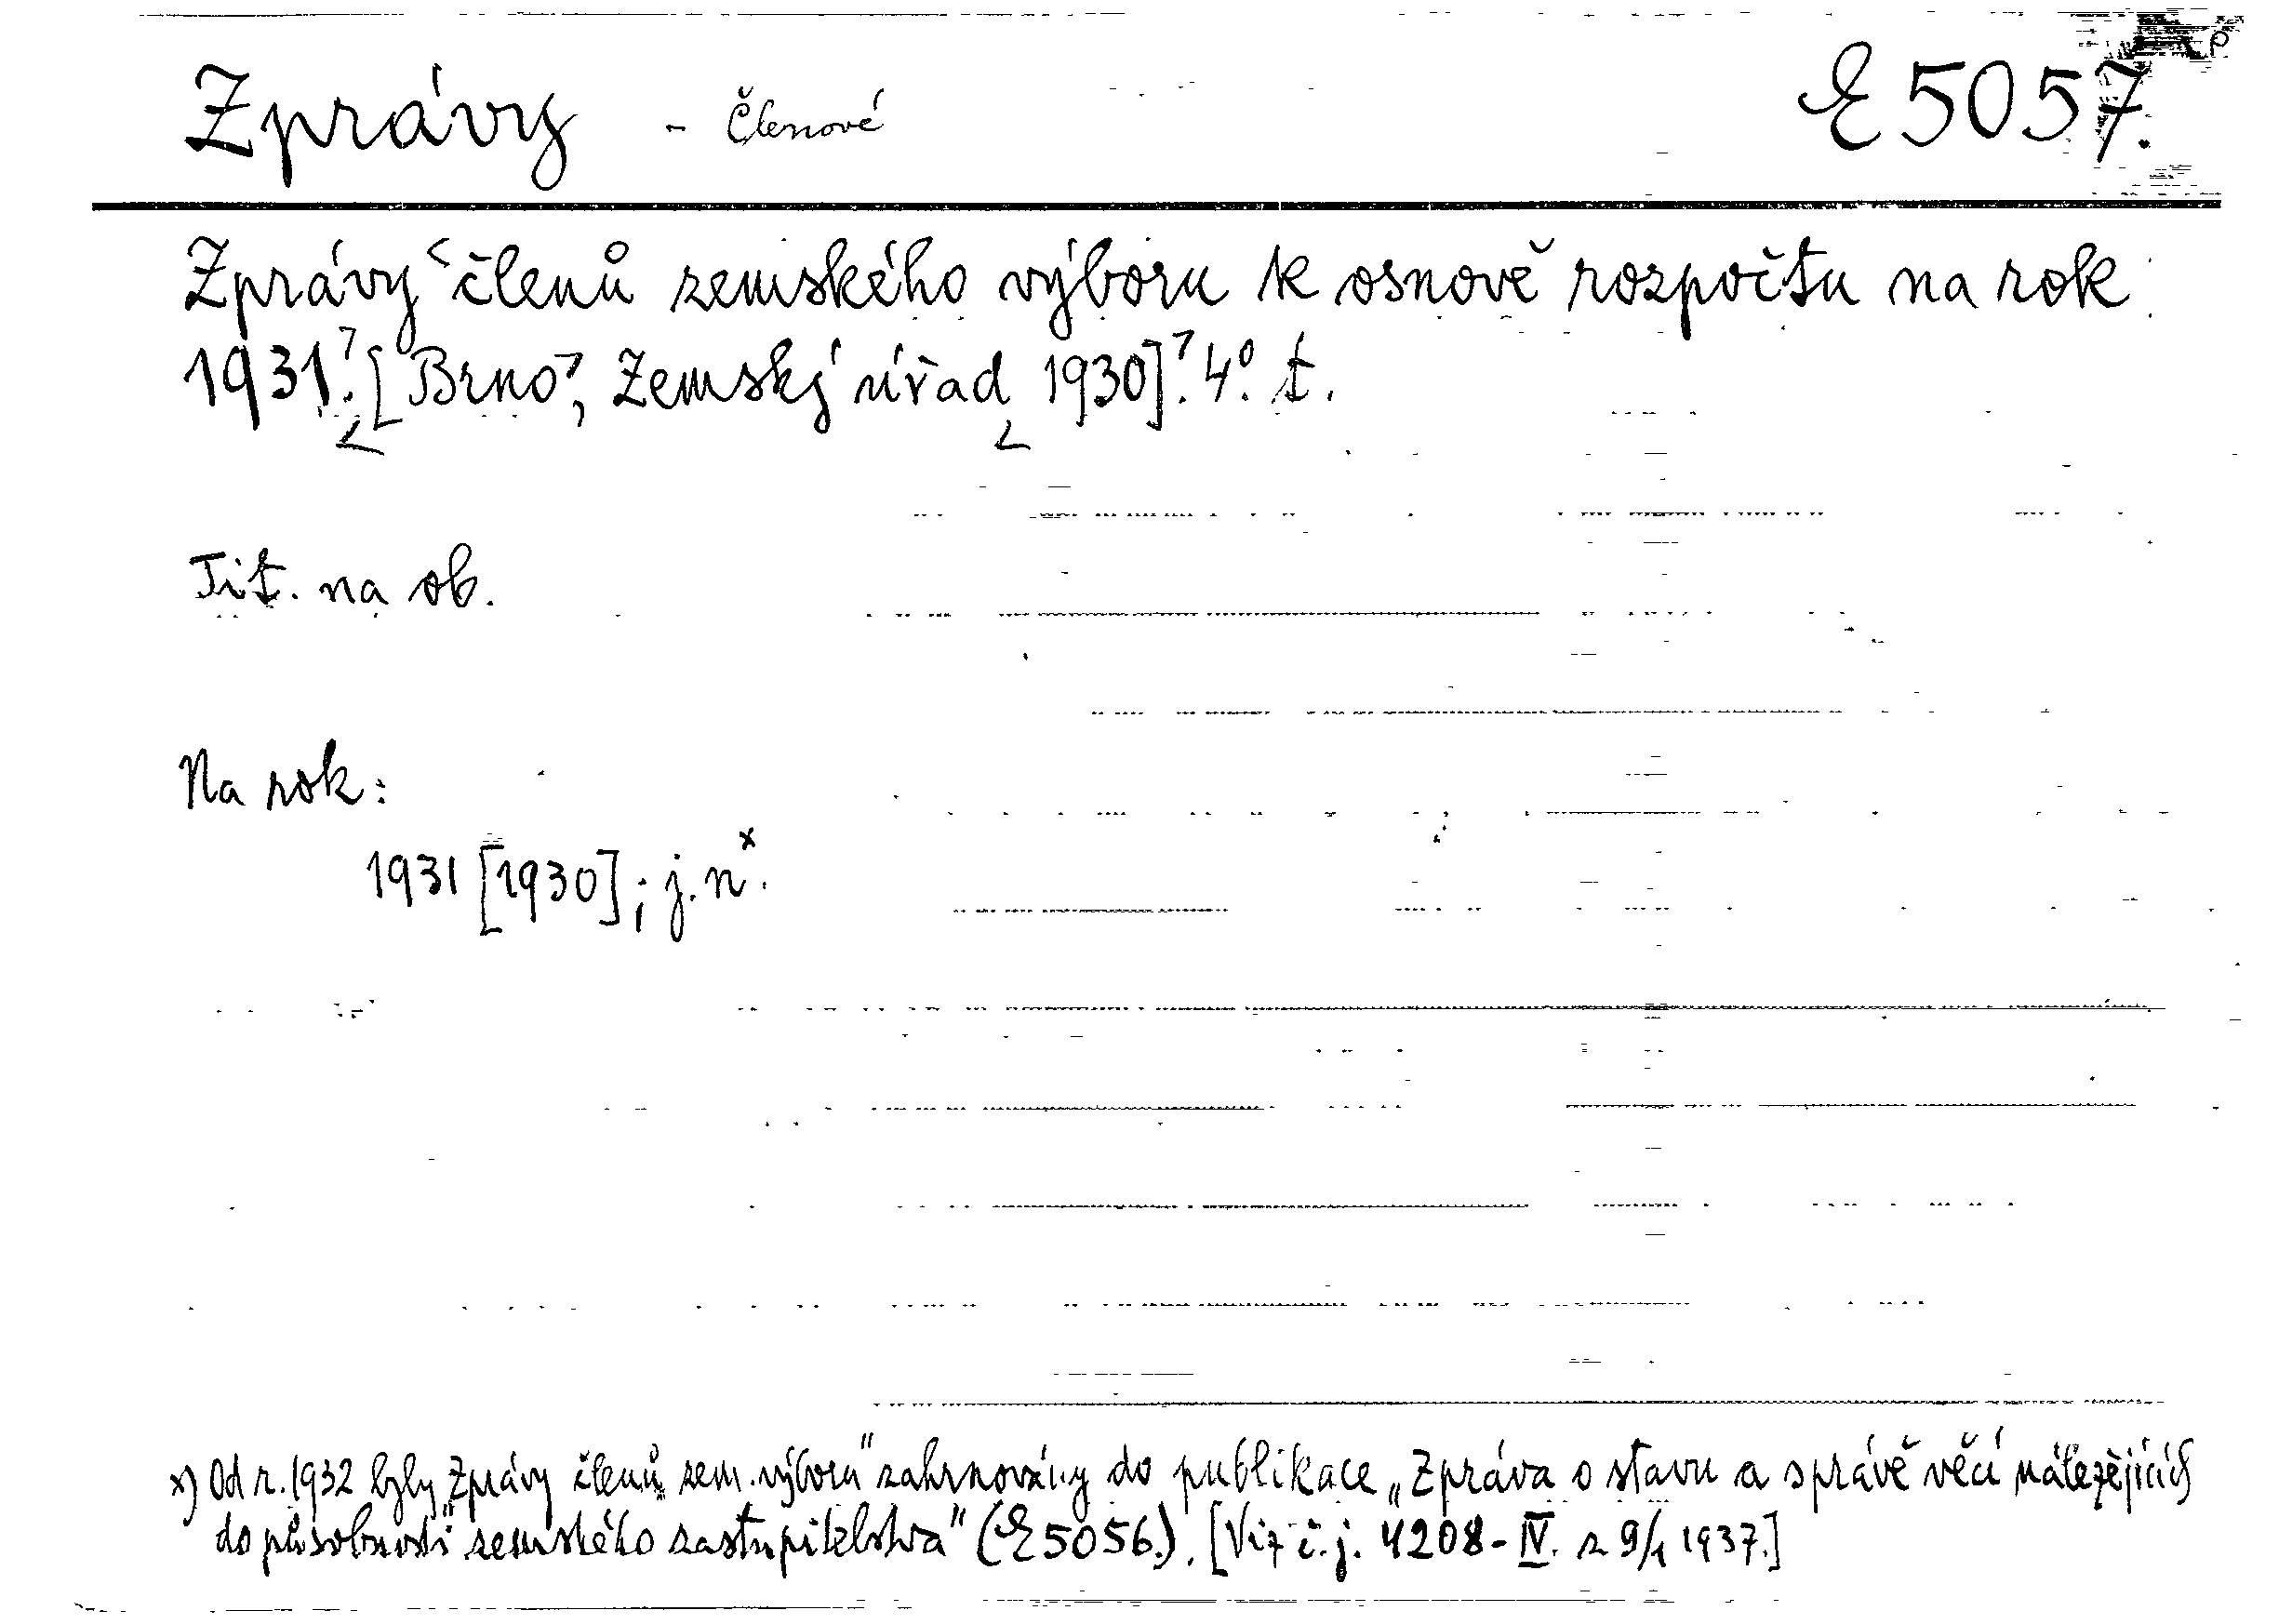 Zprávy - Členové E 5057.
Zprávy členů zemského výboru k osnově rozpočtu na rok
1931. [Brno, Zemský úřad 1930]. 4°. t.
Tit. na ob.
Na rok:
1931 [1930]; j. n.x
x) Od r. 1932 byly „Zprávy členů zem. výboru" zahrnovány do publikace „Zpráva o stavu a správě věcí náležejících
do působnosti zemského zastupitelstva" (E 5056.). [Viz č. j. 4208-IV. z 9/1 1937.]